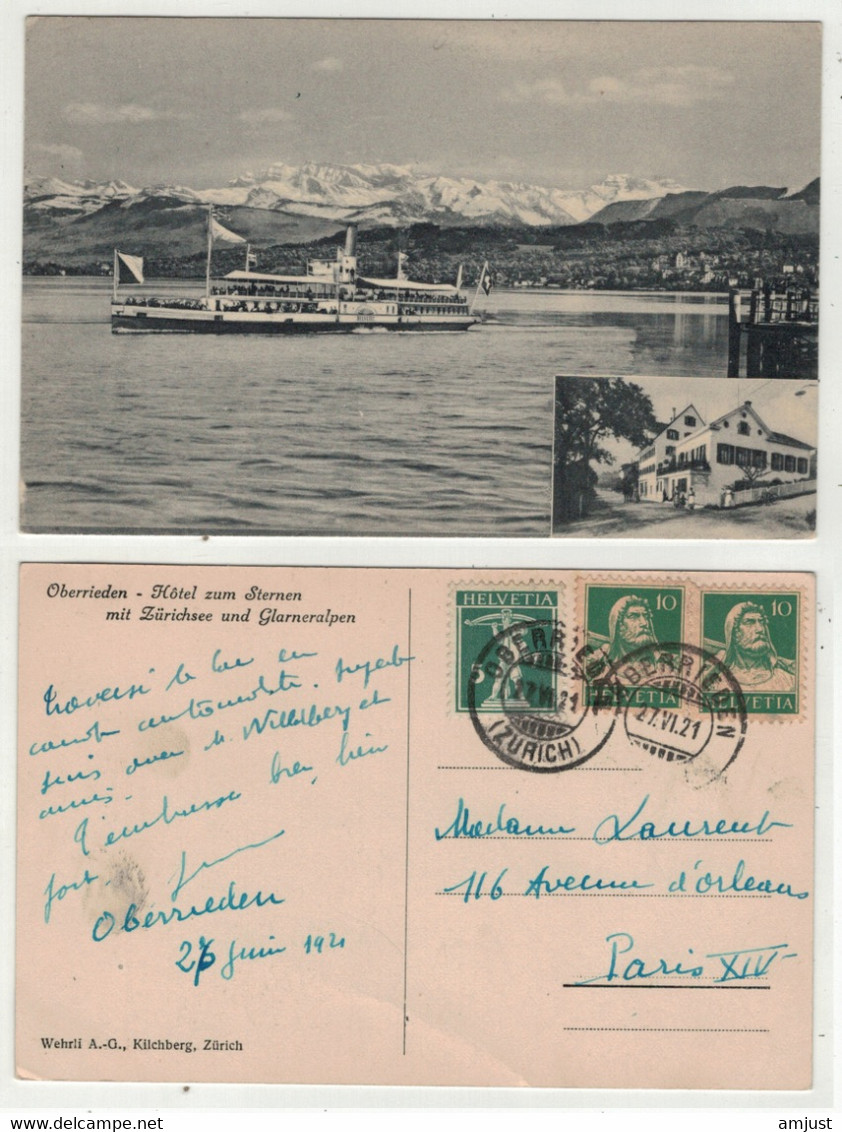 Oberrieden - Hôtel zum Sternen
mit Zürichsee und Glarneralpen
HELVETIA
5
10
HELVETIA
10
HELVETIA
OBERRIEDEN
27.VI.21
(ZÜRICH)
OBERRIEDEN
27.VI.21
Traversé le lac en
canot automobile
suis avec M. et
amis.
T'embrasse bien, bien
fort.
Oberrieden
26 Juin 1921
Madame Laurent
116 Avenue d'Orléans
Paris XIV
Wehrli A.-G., Kilchberg, Zürich
www.delcampe.net
amjust